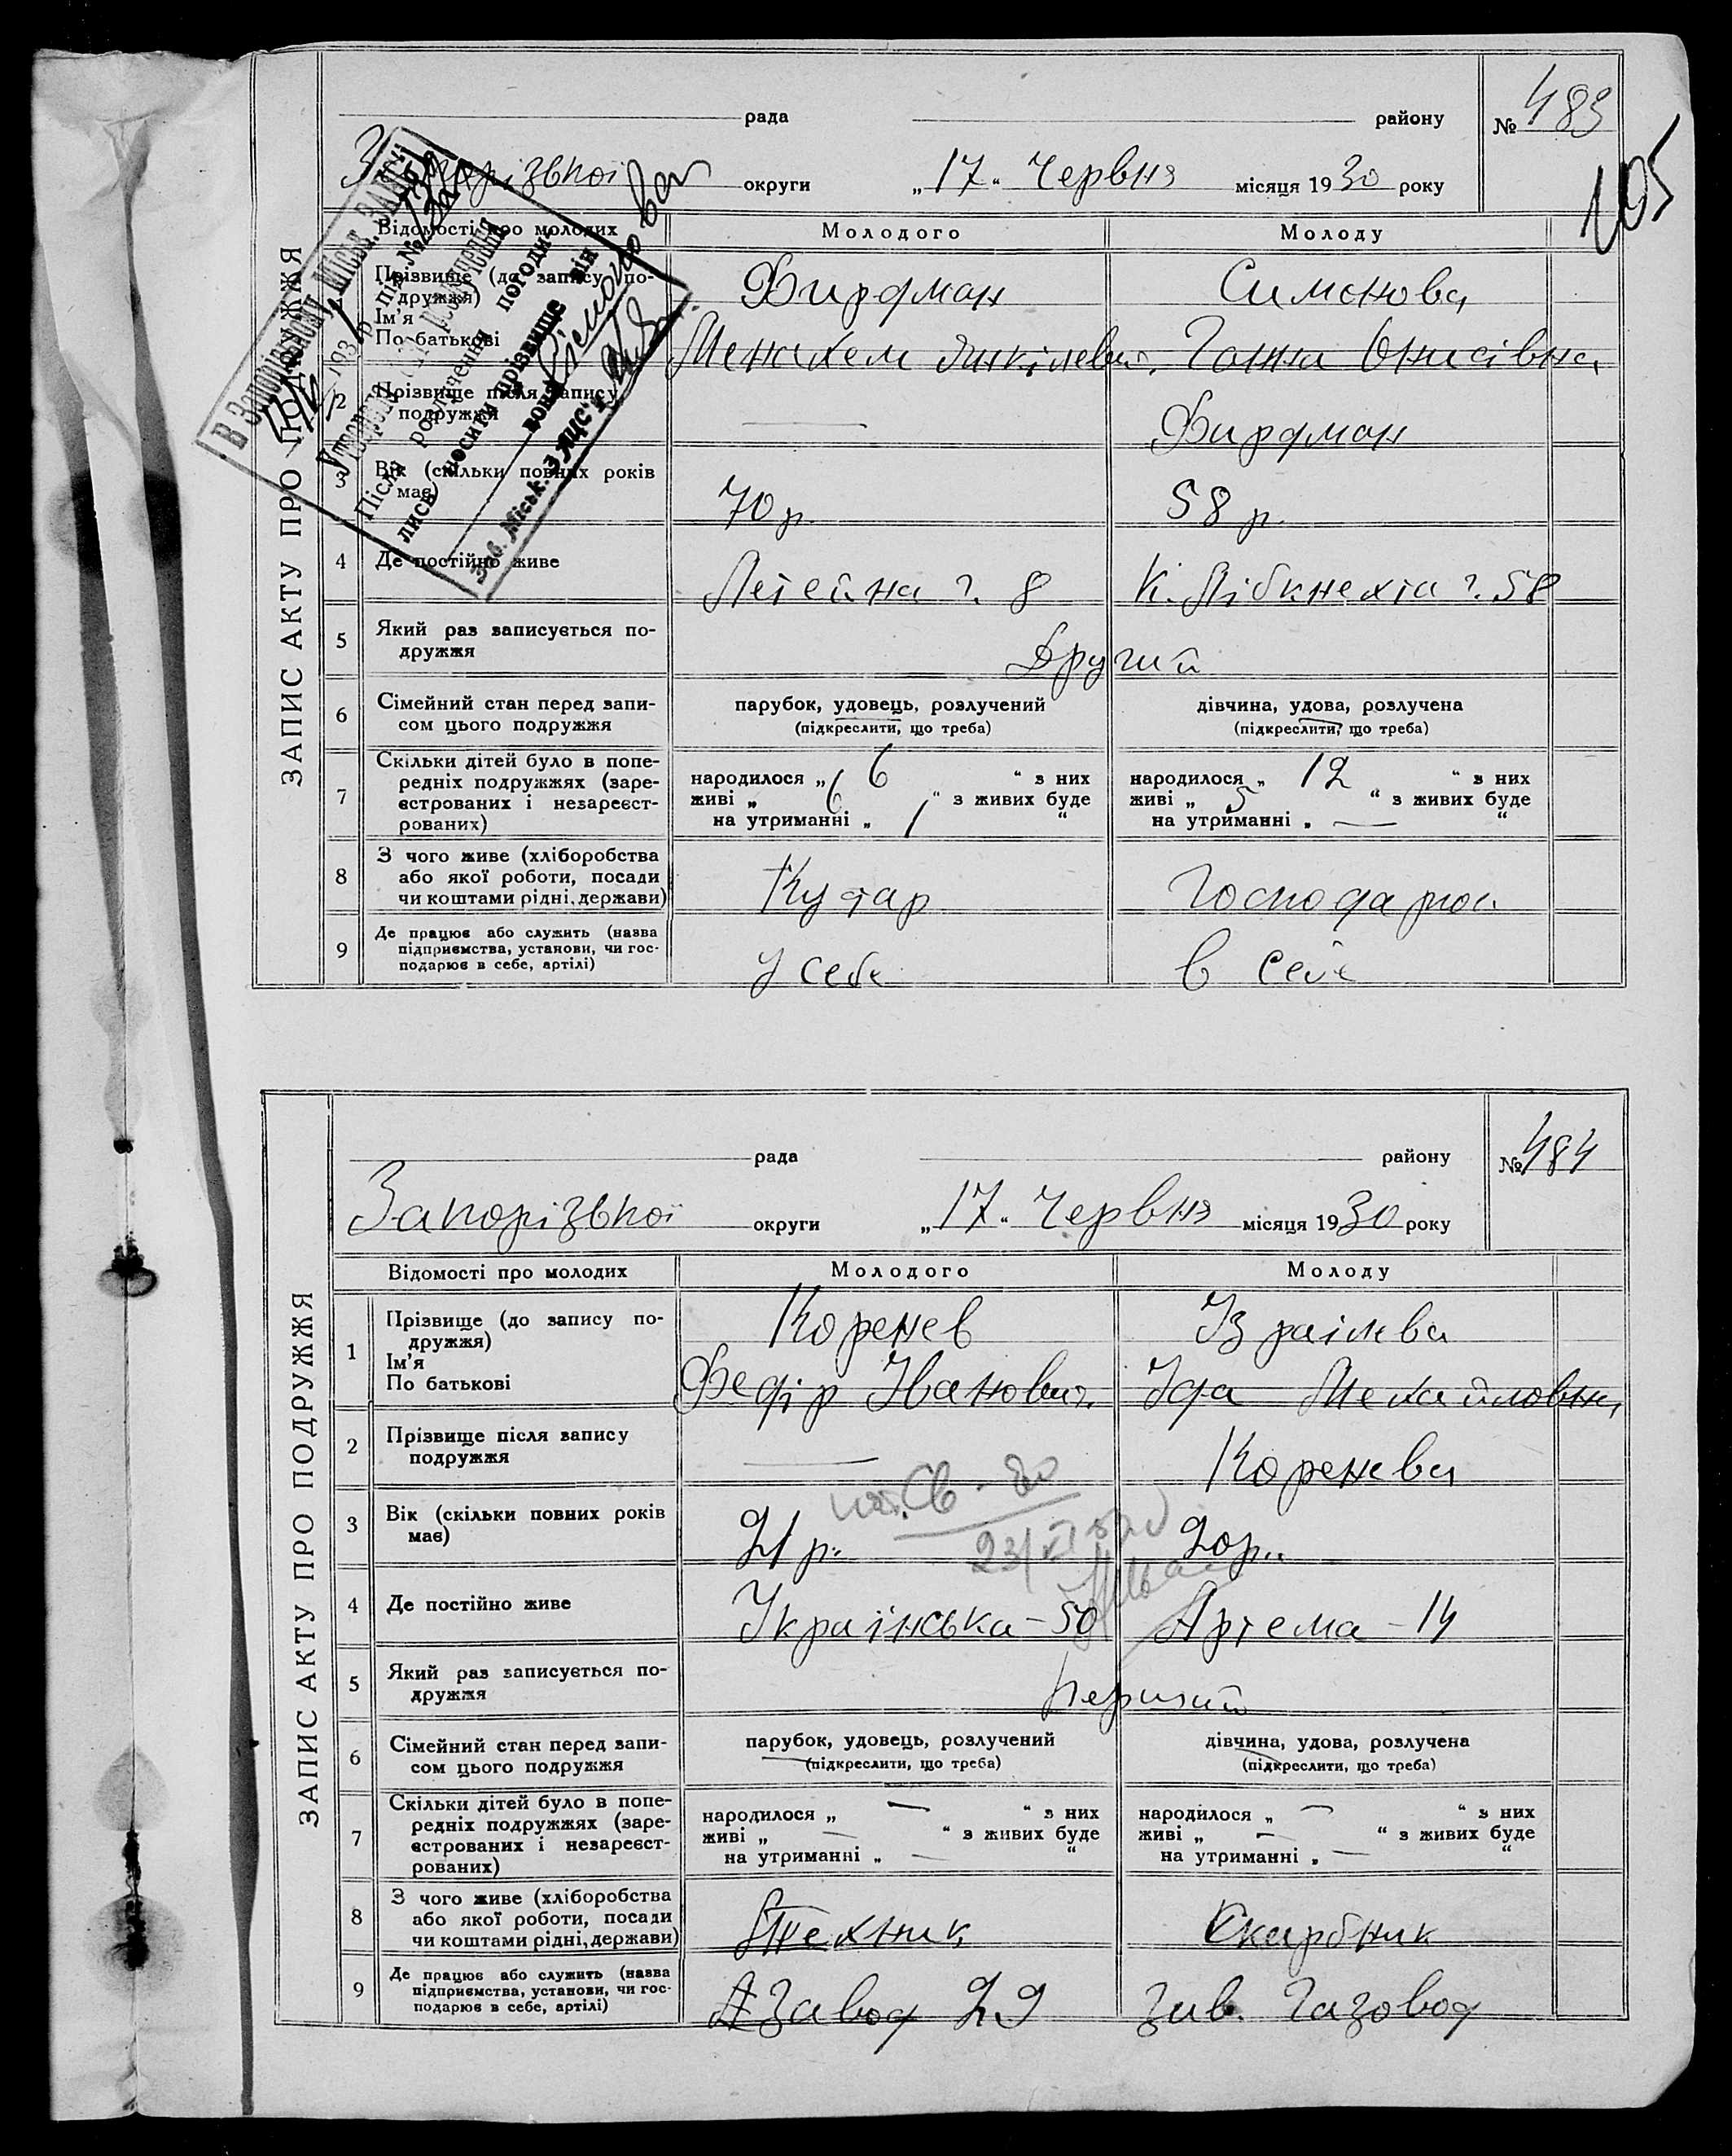 рада району № 483
Запорізької округи „17“ Червня місяця 1930 року
105
ЗАПИС АКТУ ПРО ПОДРУЖЖЯ
В Запорізькому Міськ. ЗАГСі
193 р. під №
розлучення
Після розлучення погоди-
лись носити прізвище він
вона
Зав. Міськ. ЗАГС'у
Відомості про молодих Молодого Молоду
1 Прізвище (до запису по-
дружжя) Фирдман Симонова
Ім'я
По батькові Менахем Янкілевич. Ганна Онисівна
2 Прізвище після запису
подружжя — Фирдман
3 Вік (скільки повних років
має) 70 р. 58 р.
4 Де постійно живе Летейна ч. 8 К. Лібкнехта ч. 58
5 Який раз записується по-
дружжя Другий
6 Сімейний стан перед запи-
сом цього подружжя
парубок, удовець, розлучений дівчина, удова, розлучена
(підкреслити, що треба) (підкреслити, що треба)
7 Скільки дітей було в попе-
редніх подружжях (заре-
єстрованих і незареєст-
рованих)
народилося „ 6 “ з них народилося „ 12 “ з них
живі „ 6 “ з живих буде живі „ 5 “ з живих буде
на утриманні „ 1 “ на утриманні „ — “
8 З чого живе (хліборобства
або якої роботи, посади
чи коштами рідні, держави) Кустар Господарює
9 Де працює або служить (назва
підприємства, установи, чи гос-
подарює в себе, артілі) у себе в себе
рада району № 484
Запорізької округи „17“ Червня місяця 1930 року
ЗАПИС АКТУ ПРО ПОДРУЖЖЯ
Відомості про молодих Молодого Молоду
1 Прізвище (до запису по-
дружжя) Коренев Ізраілева
Ім'я
По батькові Федір Іванович. Іда Михайловна
2 Прізвище після запису
подружжя — Коренева
3 Вік (скільки повних років
має) 21 р. 20 р.
4 Де постійно живе Українська – 50 Артема – 14
5 Який раз записується по-
дружжя Перший
6 Сімейний стан перед запи-
сом цього подружжя
парубок, удовець, розлучений дівчина, удова, розлучена
(підкреслити, що треба) (підкреслити, що треба)
7 Скільки дітей було в попе-
редніх подружжях (заре-
єстрованих і незареєст-
рованих)
народилося „ — “ з них народилося „ — “ з них
живі „ — “ з живих буде живі „ — “ з живих буде
на утриманні „ — “ на утриманні „ — “
8 З чого живе (хліборобства
або якої роботи, посади
чи коштами рідні, держави) Техник Скарбник
9 Де працює або служить (назва
підприємства, установи, чи гос-
подарює в себе, артілі) Завод 29 зав. Газовод